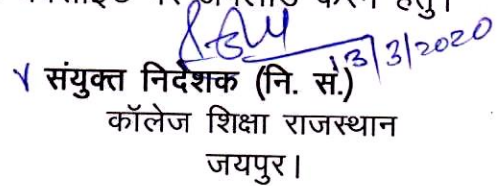 13/3/2020
संयुक्त निदेशक (नि. सं.)
कॉलेज शिक्षा राजस्थान
जयपुर।